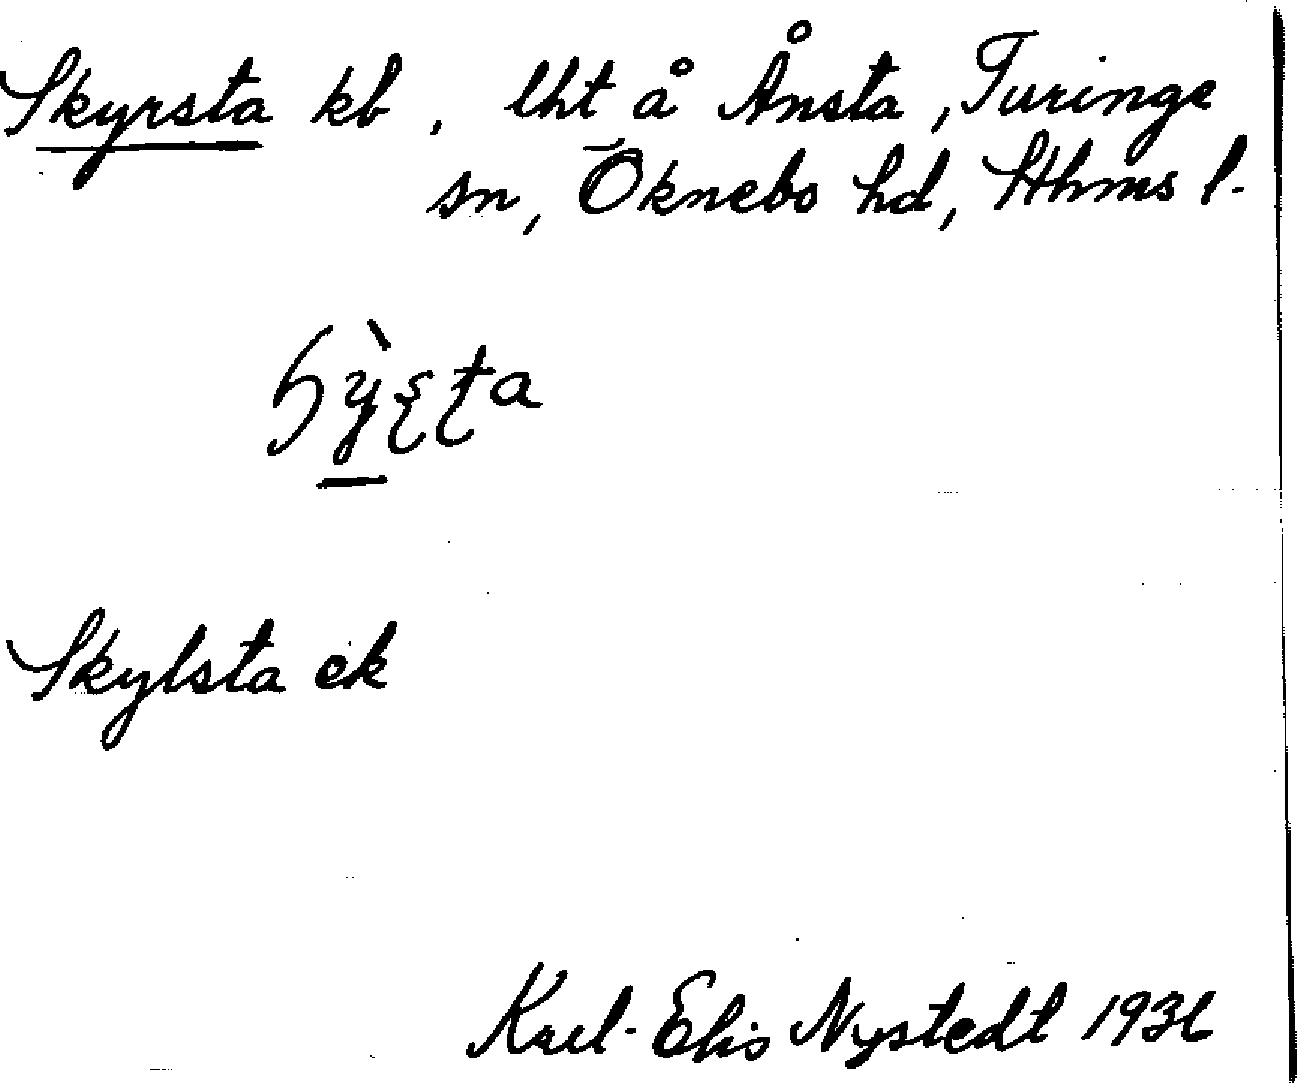 Skyrsta kb, lht å Ånsta, Turinge
sn, Öknebo hd, Sthms l.
Skylsta ek
Karl-Elis Nystedt 1936